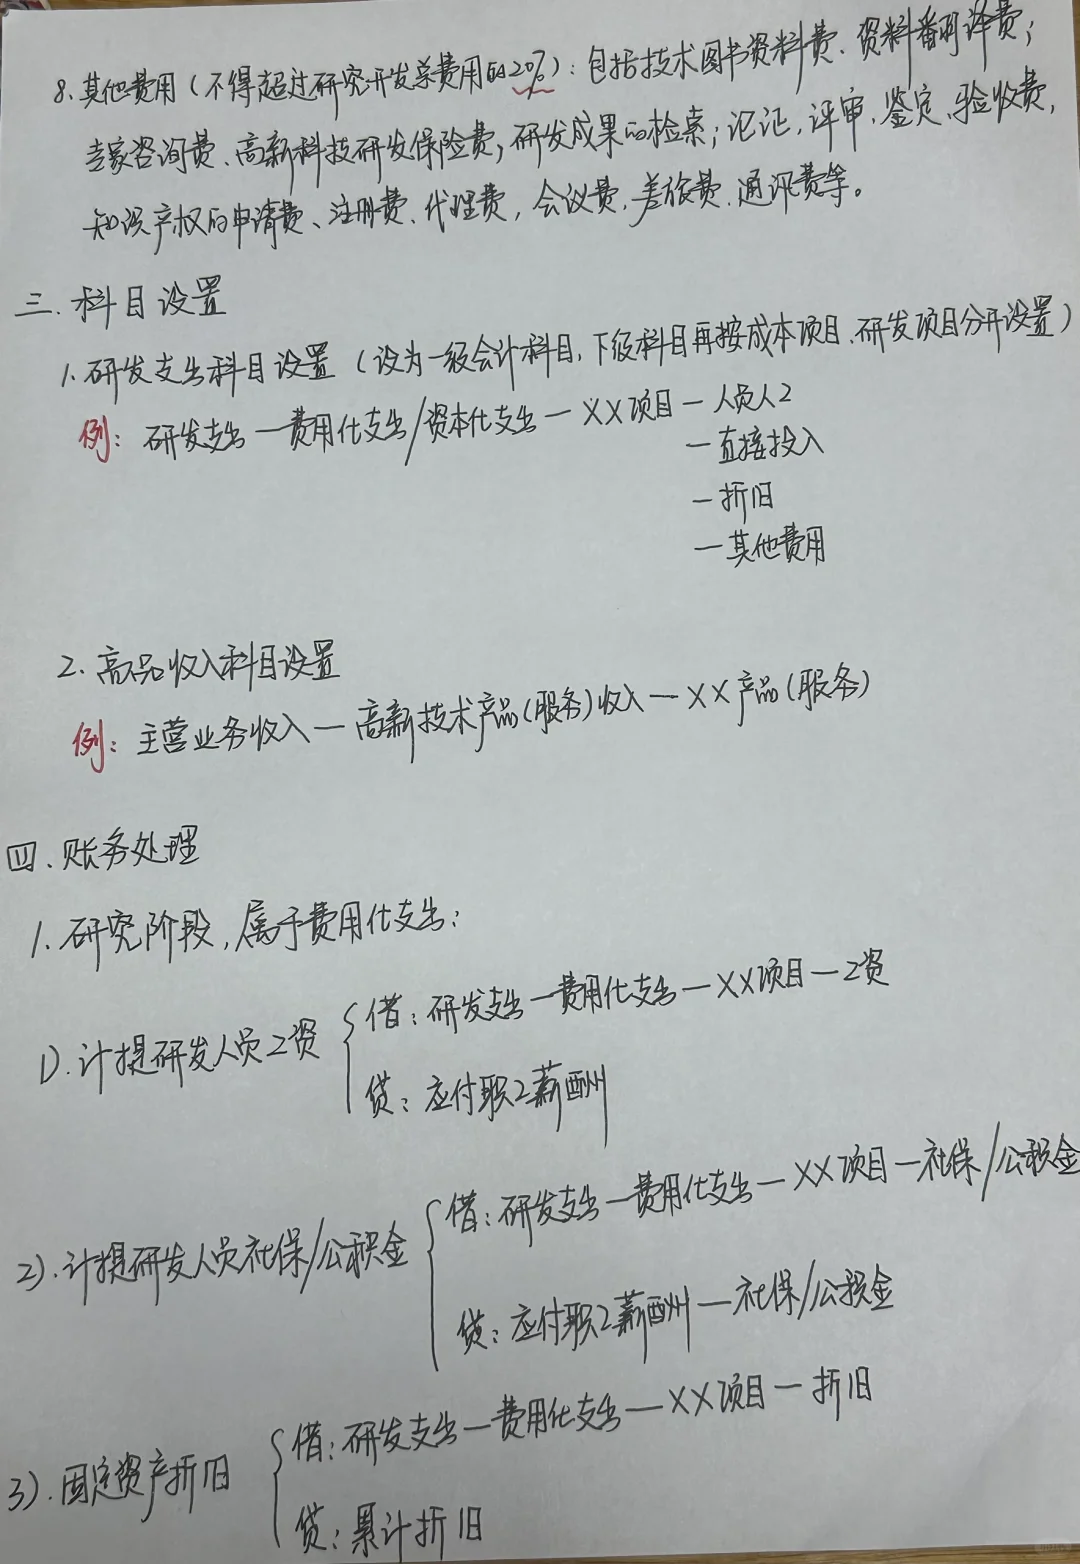 8. 其他费用（不得超过研究开发总费用的20%）：包括技术图书资料费、资料翻译费；
专家咨询费、高新科技研发保险费，研发成果的检索；论证，评审、鉴定、验收费，
知识产权的申请费、注册费、代理费，会议费、差旅费、通讯费等。
三. 科目设置
1. 研发支出科目设置（设为一级会计科目，下级科目再按成本项目、研发项目分开设置）
例：研发支出—费用化支出/资本化支出—XX项目—人员人工
—直接投入
—折旧
—其他费用
2. 高品收入科目设置
例：主营业务收入—高新技术产品(服务)收入—XX产品(服务)
四. 账务处理
1. 研究阶段，属于费用化支出：
1). 计提研发人员工资 { 借：研发支出—费用化支出—XX项目—工资
贷：应付职工薪酬
2). 计提研发人员社保/公积金 { 借：研发支出—费用化支出—XX项目—社保/公积金
贷：应付职工薪酬—社保/公积金
3). 固定资产折旧 { 借：研发支出—费用化支出—XX项目—折旧
贷：累计折旧